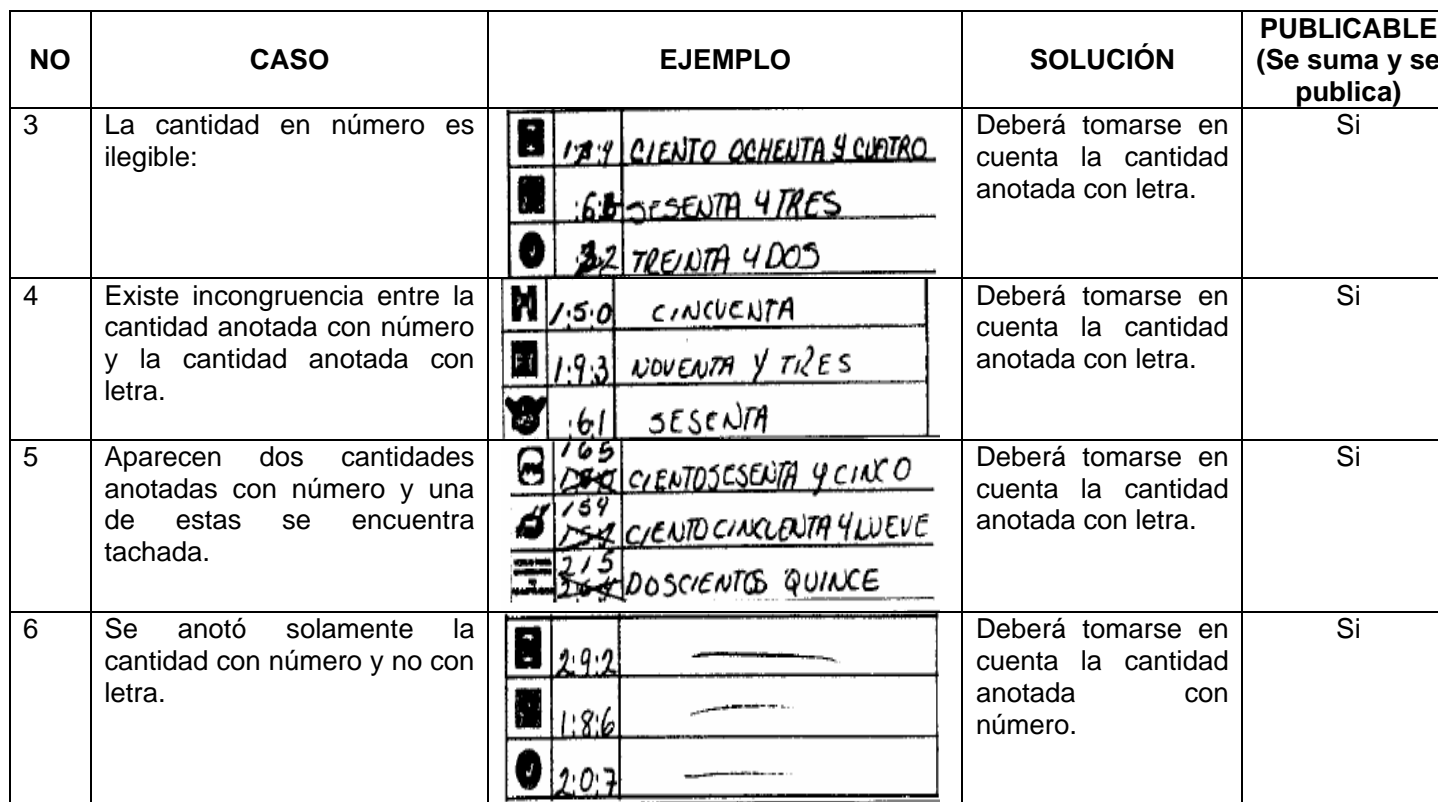 NO CASO EJEMPLO SOLUCIÓN PUBLICABLE
(Se suma y se
publica)
3 La cantidad en número es
ilegible:
CIENTO OCHENTA Y CUATRO
SESENTA Y TRES
32 TREINTA Y DOS
Deberá tomarse en
cuenta la cantidad
anotada con letra.
Si
4 Existe incongruencia entre la
cantidad anotada con número
y la cantidad anotada con
letra.
1:5:0 CINCUENTA
1:9:3 NOVENTA Y TRES
:61 SESENTA
Deberá tomarse en
cuenta la cantidad
anotada con letra.
Si
5 Aparecen dos cantidades
anotadas con número y una
de estas se encuentra
tachada.
165
CIENTO SESENTA Y CINCO
159
CIENTO CINCUENTA Y NUEVE
215
DOSCIENTOS QUINCE
Deberá tomarse en
cuenta la cantidad
anotada con letra.
Si
6 Se anotó solamente la
cantidad con número y no con
letra.
2:9:2
1:8:6
2:0:7
Deberá tomarse en
cuenta la cantidad
anotada con
número.
Si